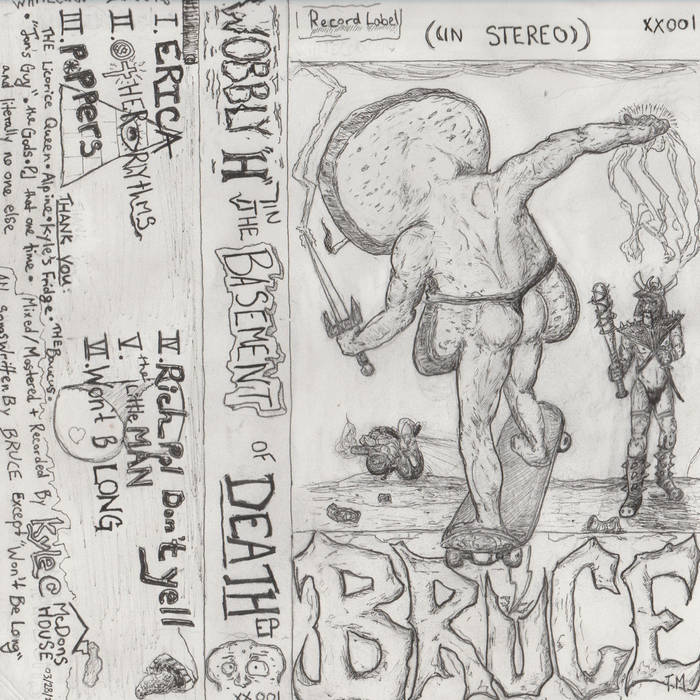 Record Label
((IN STEREO))
XX001
BRUCE
J.M.
WOBBLY "H" IN THE BASEMENT OF DEATH
XX001
I. ERICA
II. OTHER RHYTHMS
III. POPPERS
IV. Rich Pd Don't yell
V. the little MAN
VI. Wont B LONG
THANK YOU:
THE Licorice Queen • Alpine • Kyle's Fridge • THE
"Jon's Guy" • the Gods • Pd that one time • Mixed/Mastered + Recorded By Kyle @ McDons HOUSE
and literally no one else
All songs written By BRUCE Except "Won't Be Long"